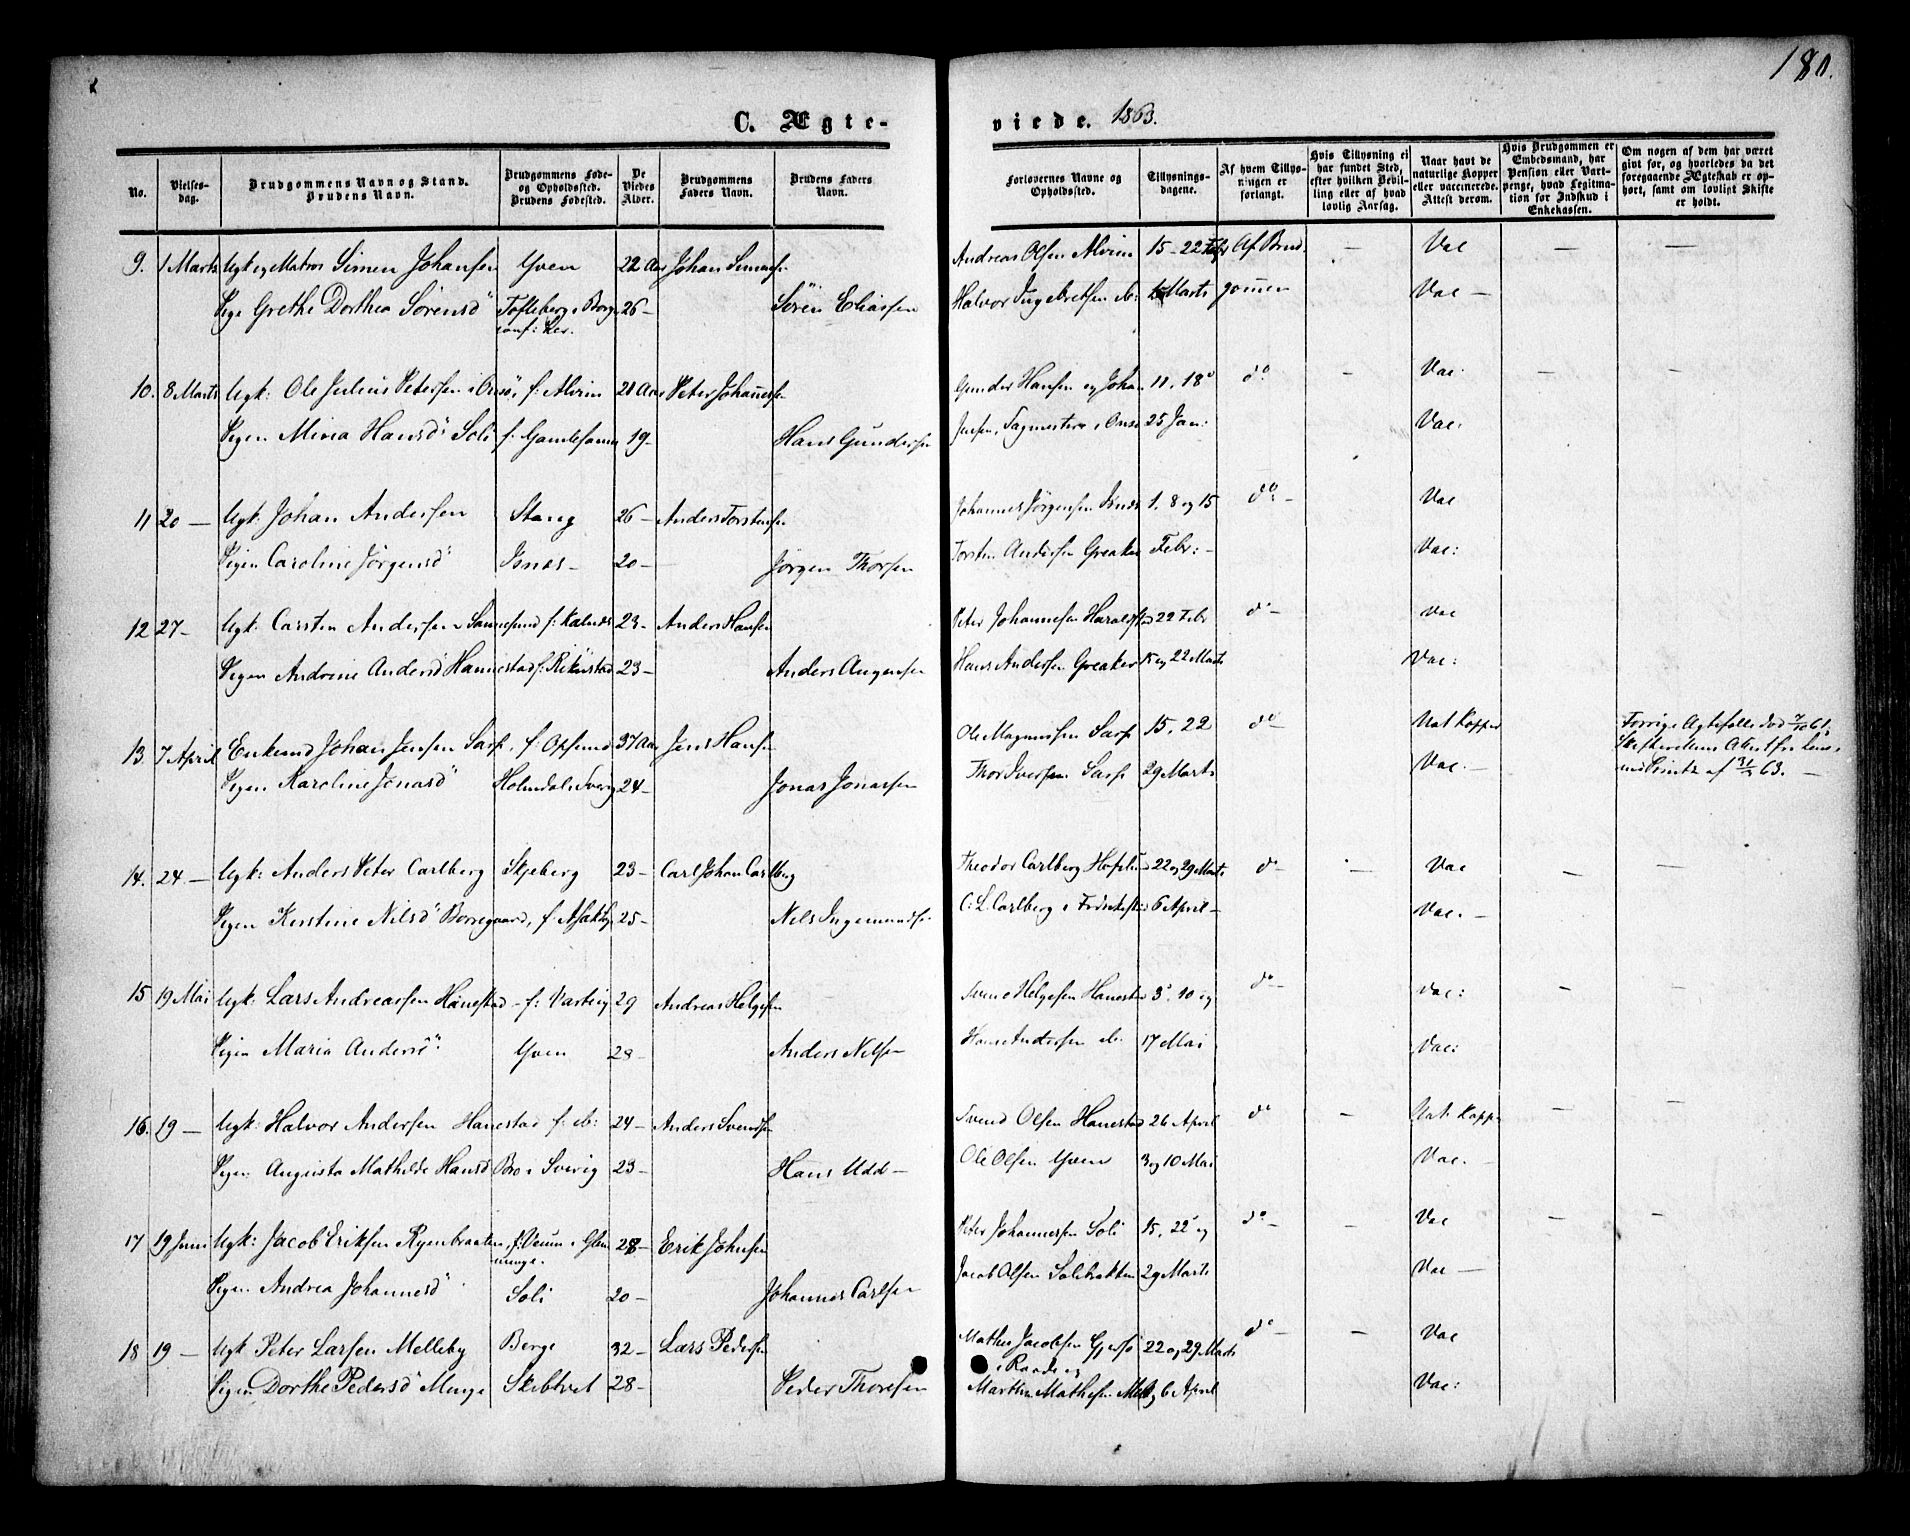 180.
C. Ægte-
viede. 1863.
No.
Vielses-
dag.
Brudgommens Navn og Stand.
Brudens Navn.
Brudgommens Føde-
og Opholdssted.
Brudens Fødested.
De
Viedes
Alder.
Brudgommens
Faders Navn.
Brudens Faders
Navn.
Forlovernes Navne og
Opholdssted.
Tillysnings-
dagene.
Af hvem Tillys-
ningen er
forlangt.
Hvis Tillysning ei
har fundet Sted,
efter hvilken Bevil-
ling eller af hvad
lovlig Aarsag.
Naar havt de
naturlige Kopper
eller vaccinerede.
Attest derom.
Hvis Brudgommen er
Embedsmand, har
Pension eller Vart-
penge, hvad Legitima-
tion for Indskud i
Enkekassen.
Om nogen af dem har været
gift før, og hvorledes da det
foregaaende Ægteskab er op-
hørt, samt om lovligt Skifte
er holdt.
9. 1 Marts Ugk og Matros Simen Johansen Yven 22 Aar Johan Simensen Andreas Olsen Alvim 15-22 Febr Af Brud- — Vac — —
Pige Grethe Dorthea Sørensd Tofteberg i Borge 26- Søren Eliassen Halvor Ingebretsen ib: Marts gommen Vac —
10. 8 Marts Ugk: Ole Julius Petersen i Onsø, f: Alvim 21 Aar Peter Johannesen Gunder Hansen og Johan 11. 18 do — Vac. — —
Pigen Mina Hansd Soli f. Gamlesannes 19- Hans Gundersen Jensen, i Onsø 25 Jan: Vac.
11 20 — Ugk: Johan Andersen Stang 26- Anders Torstensen Johannes Jørgensen Isnes 1. 8 og 15 do — Vac
Pigen Caroline Jørgensd Isnes- 20- Jørgen Thorsen Torsten Andersen Greaker Febr: - Vac:
12 27- Ugk: Carsten Andersen Sannesund f: Kalnes 23- Anders Hansen Peter Johannesen 22 Febr do — Vac
Pigen Andrine Andersd Hannestad f: 23- Anders Augensen Hans Andersen Greaker 15 og 22 Marts Vac:
13 7 April Enkemd Johan Jensen Sarp, f: Opsund 37 Aar Jens Hansen Ole Magnussen Sarp 15, 22 do — Nat Kopper Forrige Ægtefælle død 7/10 61,
Pigen Karoline Jonasd Holmdal i Sverig 24- Jonas Jonassen Thor Iversen Sarp 29 Marts Vac. — Skifterettens Attest fra Lens-
md af 31/3 63. —
14. 24 — Ugk: Anders Peter Carlberg Skjeberg 23- Carl Johan Carlberg Theodor Carlberg Hafslund 22 og 29 Marts do — Vac — —
Pigen Kerstine Nilsd Borregaard, f. 25- Nels Ingemundsen C. L. Carlberg i Fredrikstad 6 April- Vac. —
15 19 Mai Ugk: Lars Andreassen Hanestad - f: Varteig 29 Andreas Helgesen Helgesen Hanestad 3, 10 og do — Vac: — —
Pigen Maria Andersd Yven 23- Anders Nilsen Hans Andersen ib. 17 Mai Vac:
16. 19 — Ugk: Halvor Andersen Hanestad f. ib: 24- Anders Svendsen Svend Olsen Hanestad 26 April do — Nat. Kopper — —
Pigen Augusta Mathilde Hansd Bro i Sverig 23- Hans Udd — Ole Olsen Yven 3 og 10 Mai Vac. —
17 19 Juni Ugk: Jacob Eriksen Ryenbraaten, f: Veum i Glem- 28- Erik Johnsen Peter Johannessen Soli 15, 22 og do — — Vac — —
minge.
Pigen Andrea Johannesd Soli 20- Johannes Carlsen Jacob Olsen Solibakken 29 Marts Vac —
18 19 — Ugk Peter Larsen Melleby Berge 32- Lars Pedersen Mathis Jacobsen 22 og 29 Marts do — — Vac
i Raade og
Pigen Dorthe Pedersd Minge Skibtvet 28- Peder Thoresen Marthin Mathisen og 6 April Vac: